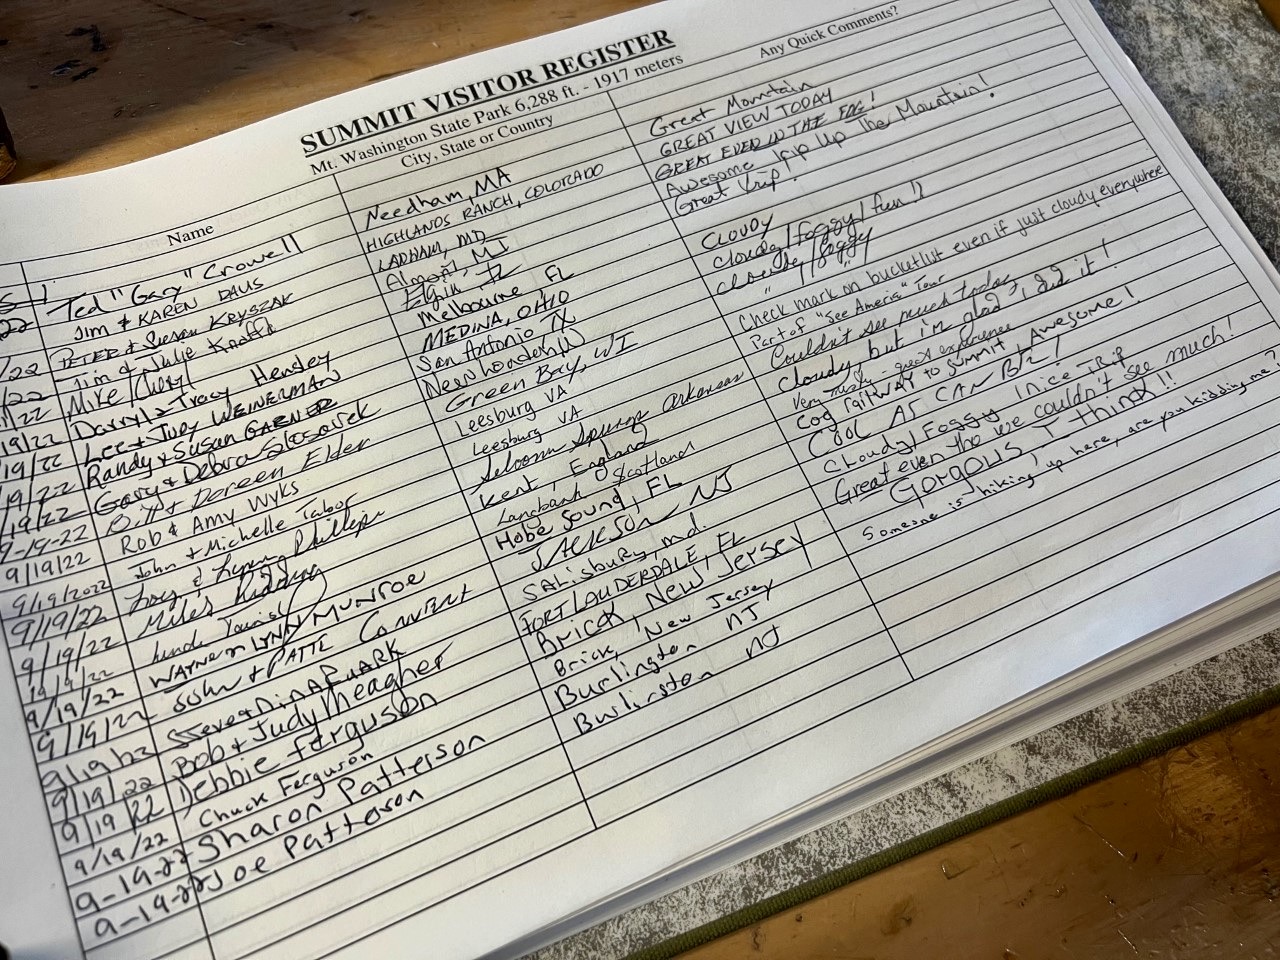 SUMMIT VISITOR REGISTER
Mt. Washington State Park 6,288 ft. - 1917 meters
Name City, State or Country Any Quick Comments?
Ted "Gary" Crowell Needham, MA Great Mountain
22 Jim & KAREN DAUS HIGHLANDS RANCH, COLORADO GREAT VIEW TODAY
PETER & Susan KRYSZAK LANHAM, MD GREAT EVEN IN THE FOG!
/22 Jim & Julie MI Awesome Trip Up The Mountain!
Mike Elgin IL Great trip!
/22 Darryl & Tracy Hensley Melbourne, FL CLOUDY
19/22 Lee & Judy WEINERMAN MEDINA, OHIO cloudy/foggy/fun!!
19/22 Randy & Susan GARNER San Antonio TX cloudy/foggy
19/22 Gary & Debra New London WI " / "
19/22 Bill & Doreen Elder Green Bay, WI Check mark on bucketlist even if just cloudy everywhere
9-19-22 Rob & Amy Wyks Leesburg VA Part of "See America" Tour
9/19/22 John & Michelle Tabor Leesburg VA Couldn't see much today
9/19/2022 & Phillips Springs Arkansas Cloudy but i'm glad I did it!
9/19/22 Miles Kent, England Very misty - great experience
9/19/22 Langbank Scotland Cog railway to summit, Awesome!
9/19/22 WAYNE & LYNN MUNROE Hobe Sound, FL COOL AS CAN BE!
9/19/22 JOHN & PATTI JACKSON NJ Cloudy/Foggy Nice Trip
9/19/22 Steve & Dina RUARK SALisbuRy, md. Great even tho we couldn't see much!
9/19/22 Bob & Judy Meagher FORT LAUDERDALE, FL GORGOUS, I Think!!
9/19/22 Debbie Ferguson Brick, New Jersey Someone is hiking up here, are you kidding me?
9/19/22 Chuck Ferguson Brick, New Jersey
9-19-22 Sharon Patterson Burlington NJ
9-19-22 Joe Patterson Burlinston NJ